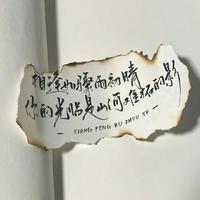 相逢如骤雨初晴
你的光临是山河难拓的影
- XIANG FENG RU ZHOU YU -